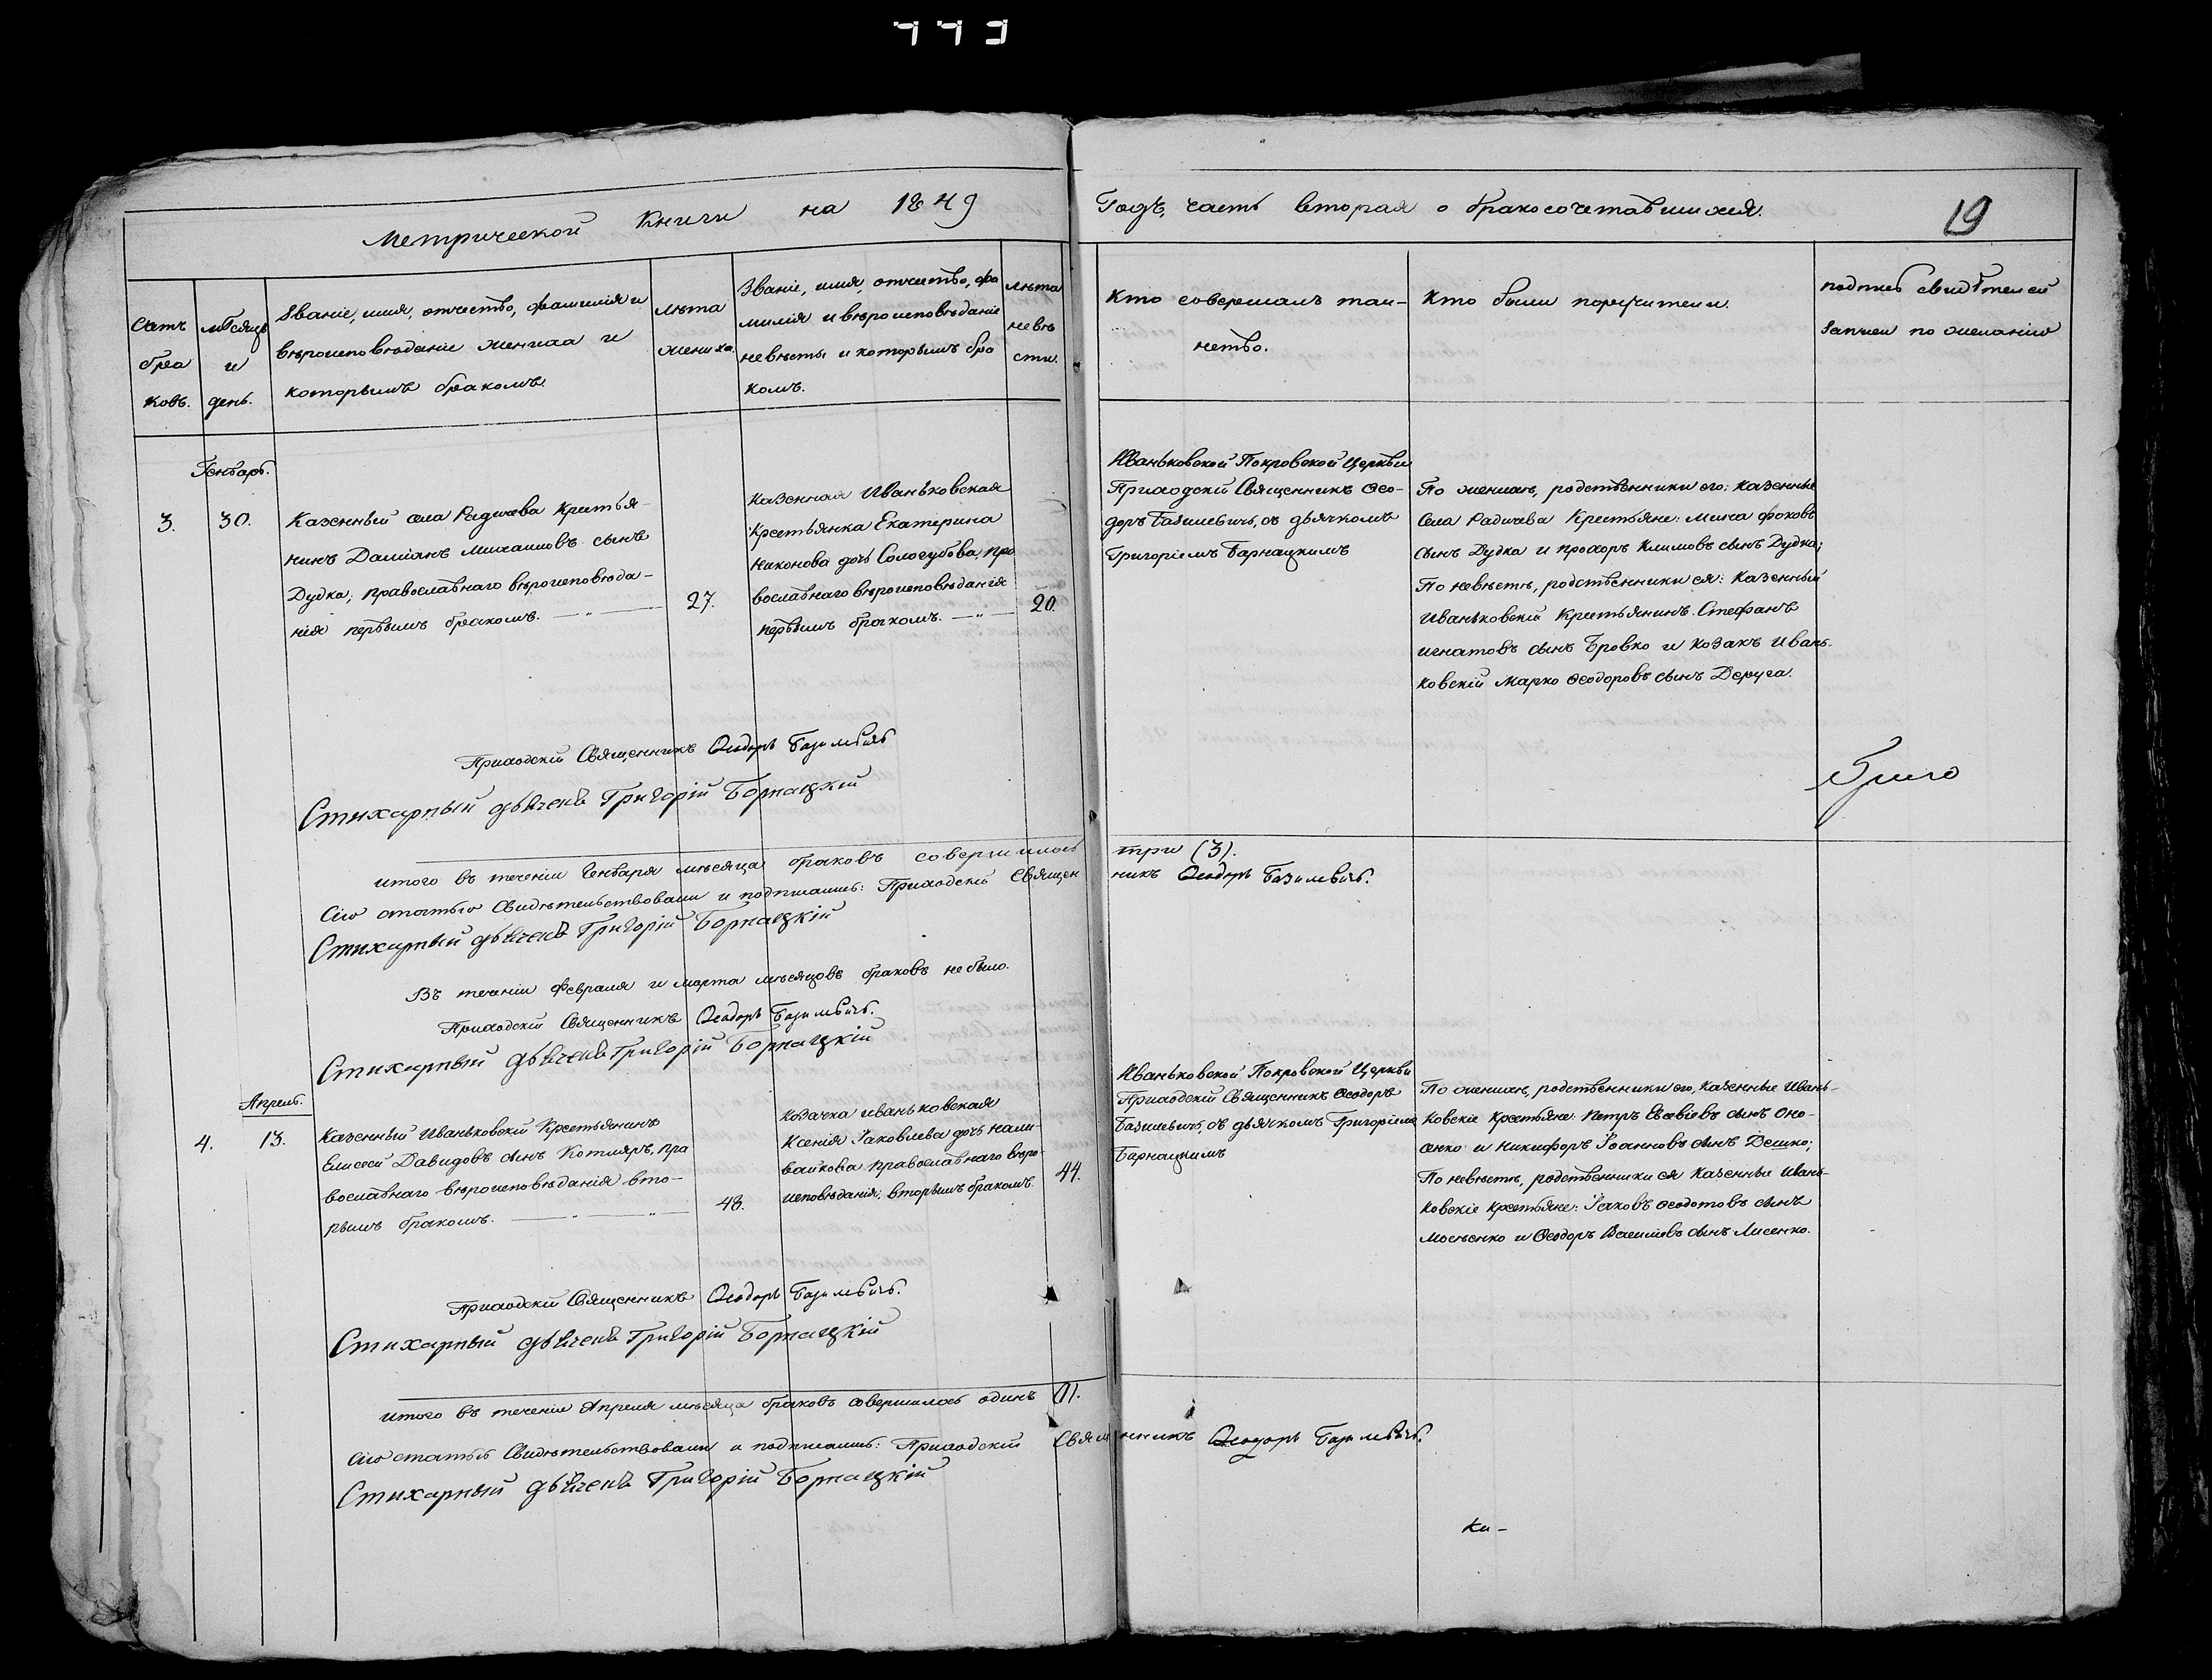 Метрической Книги на 1849
Годъ, часть вторая о бракосочетавшихся.
19
Счетъ
бра
ковъ.
мѣсяцъ
и
день.
Званіе, имя, отчество, фамилія и
вѣроисповѣданіе жениха и
которымъ бракомъ.
лѣта
жениха.
Званіе, имя, отчество, фа
милія и вѣроисповѣданіе
невѣсты и которымъ бра
комъ.
лѣта
невѣ
сты.
Кто совершалъ таи-
нство.
Кто были поручители.
подпись свидѣтелей
записи по желанію
Генварь.
3.
30.
Казенный села Радичева Крестья-
нинъ Даміанъ Михаиловъ сынъ
Дудка; православнаго вѣроисповѣда-
нія первымъ бракомъ.
27.
Казенная Иваньковская
Крестьянка Екатерина
Никонова дочь Сологубова, пра
вославнаго вѣроисповѣданія
первымъ бракомъ.
20.
Иваньковской Покровской Церкви
Приходскій Священникъ Ѳео-
доръ Базилевичъ, съ дьячкомъ
Григоріемъ Барнацкимъ
По женихѣ, родственники его: казенные
Села Радичева Крестьяне: Миха фоковъ
сынъ Дудка и прохоръ Климовъ сынъ Дудка;
По невѣстѣ, родственники ея: Казенный
Иваньковскій Крестьянинъ Стефанъ
игнатовъ сынъ Бровко и козакъ Ивань-
ковскій Марко Ѳеодоровъ сынъ Деруга.
Приходскій Священникъ Ѳеодоръ Базилевичъ
Стихарный дьячекъ Григорій Борнацкій
итого въ теченіи Генваря мѣсяца браковъ совершилось
три (3).
Сію статью Свидѣтельствовали и подписались: Приходскій Священ
никъ Ѳеодоръ Базилевичъ.
Стихарный дьячекъ Григорій Борнацкій
Въ теченіи Февраля и марта мѣсяцовъ браковъ не было.
Приходскій Священникъ Ѳеодоръ Базилевичъ.
Стихарный дьячекъ Григорій Борнацкій
Апрель.
4.
13.
Казенный Иваньковскій Крестьянинъ
Елисей Давидовъ сынъ Котляръ, пра
вославнаго вѣроисповѣданія вто-
рымъ бракомъ.
48.
Козачка иваньковская
Ксенія Іаковлева дочь нали-
вайкова православнаго вѣро-
исповѣданія; вторымъ бракомъ.
44.
Иваньковской Покровской Церкви
Приходскій Священникъ Ѳеодоръ
Базилевичъ, съ дьячкомъ Григоріемъ
Барнацкимъ
По женихѣ, родственники его, казенные Ивань-
ковскіе Крестьяне: Петръ Евсевіевъ сынъ Оно-
сенко и Никифоръ Іоанновъ сынъ Дешко;
По невѣстѣ, родственники ея Казенные Ивань-
ковскіе Крестьяне: Іаковъ Ѳеодотовъ сынъ
Мосѣенко и Ѳеодоръ Василіевъ сынъ Лисенко.
Приходскій Священникъ Ѳеодоръ Базилевичъ.
Стихарный дьячекъ Григорій Борнацкій
итого въ теченіе Апреля мѣсяца браковъ совершилось одинъ (1).
Сію статью Свидѣтельствовали и подписались: Приходскій Священникъ Ѳеодоръ Базилевичъ.
Стихарный дьячекъ Григорій Борнацкій
Ки-